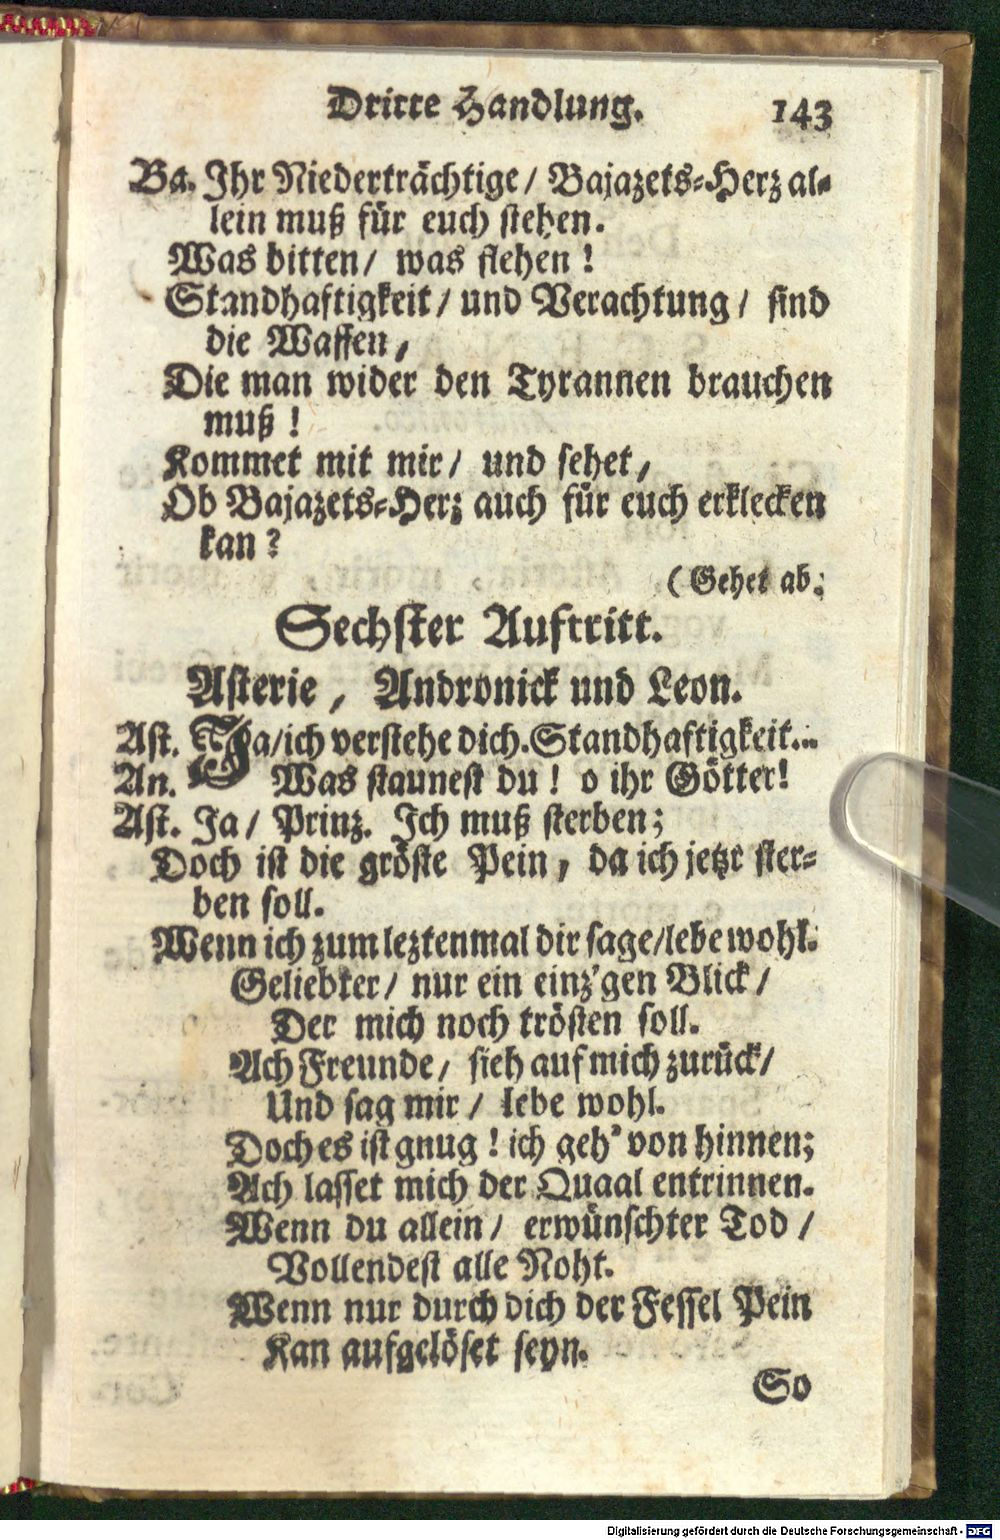 Dritte Handlung. 143
Ba. Ihr Niederträchtige/ Bajazets-Herz al-
lein muß für euch stehen.
Was bitten/ was flehen!
Standhaftigkeit/ und Verachtung/ sind
die Waffen,
Die man wider den Tyrannen brauchen
muß!
Kommet mit mir/ und sehet,
Ob Bajazets-Herz auch für euch erklecken
kan?
(Gehet ab.
Sechster Auftritt.
Asterie, Andronick und Leon.
Ast. Ja/ich verstehe dich. Standhaftigkeit...
An. Was staunest du! o ihr Götter!
Ast. Ja/ Prinz. Ich muß sterben;
Doch ist die gröste Pein, da ich jetzt ster-
ben soll.
Wenn ich zum leztenmal dir sage/lebe wohl.
Geliebter/ nur ein einz'gen Blick/
Der mich noch trösten soll.
Ach Freunde/ sieh auf mich zurück/
Und sag mir/ lebe wohl.
Doch es ist gnug! ich geh' von hinnen;
Ach lasset mich der Quaal entrinnen.
Wenn du allein/ erwünschter Tod/
Vollendest alle Noht.
Wenn nur durch dich der Fessel Pein
Kan aufgelöset seyn.
So
Digitalisierung gefördert durch die Deutsche Forschungsgemeinschaft - DFG